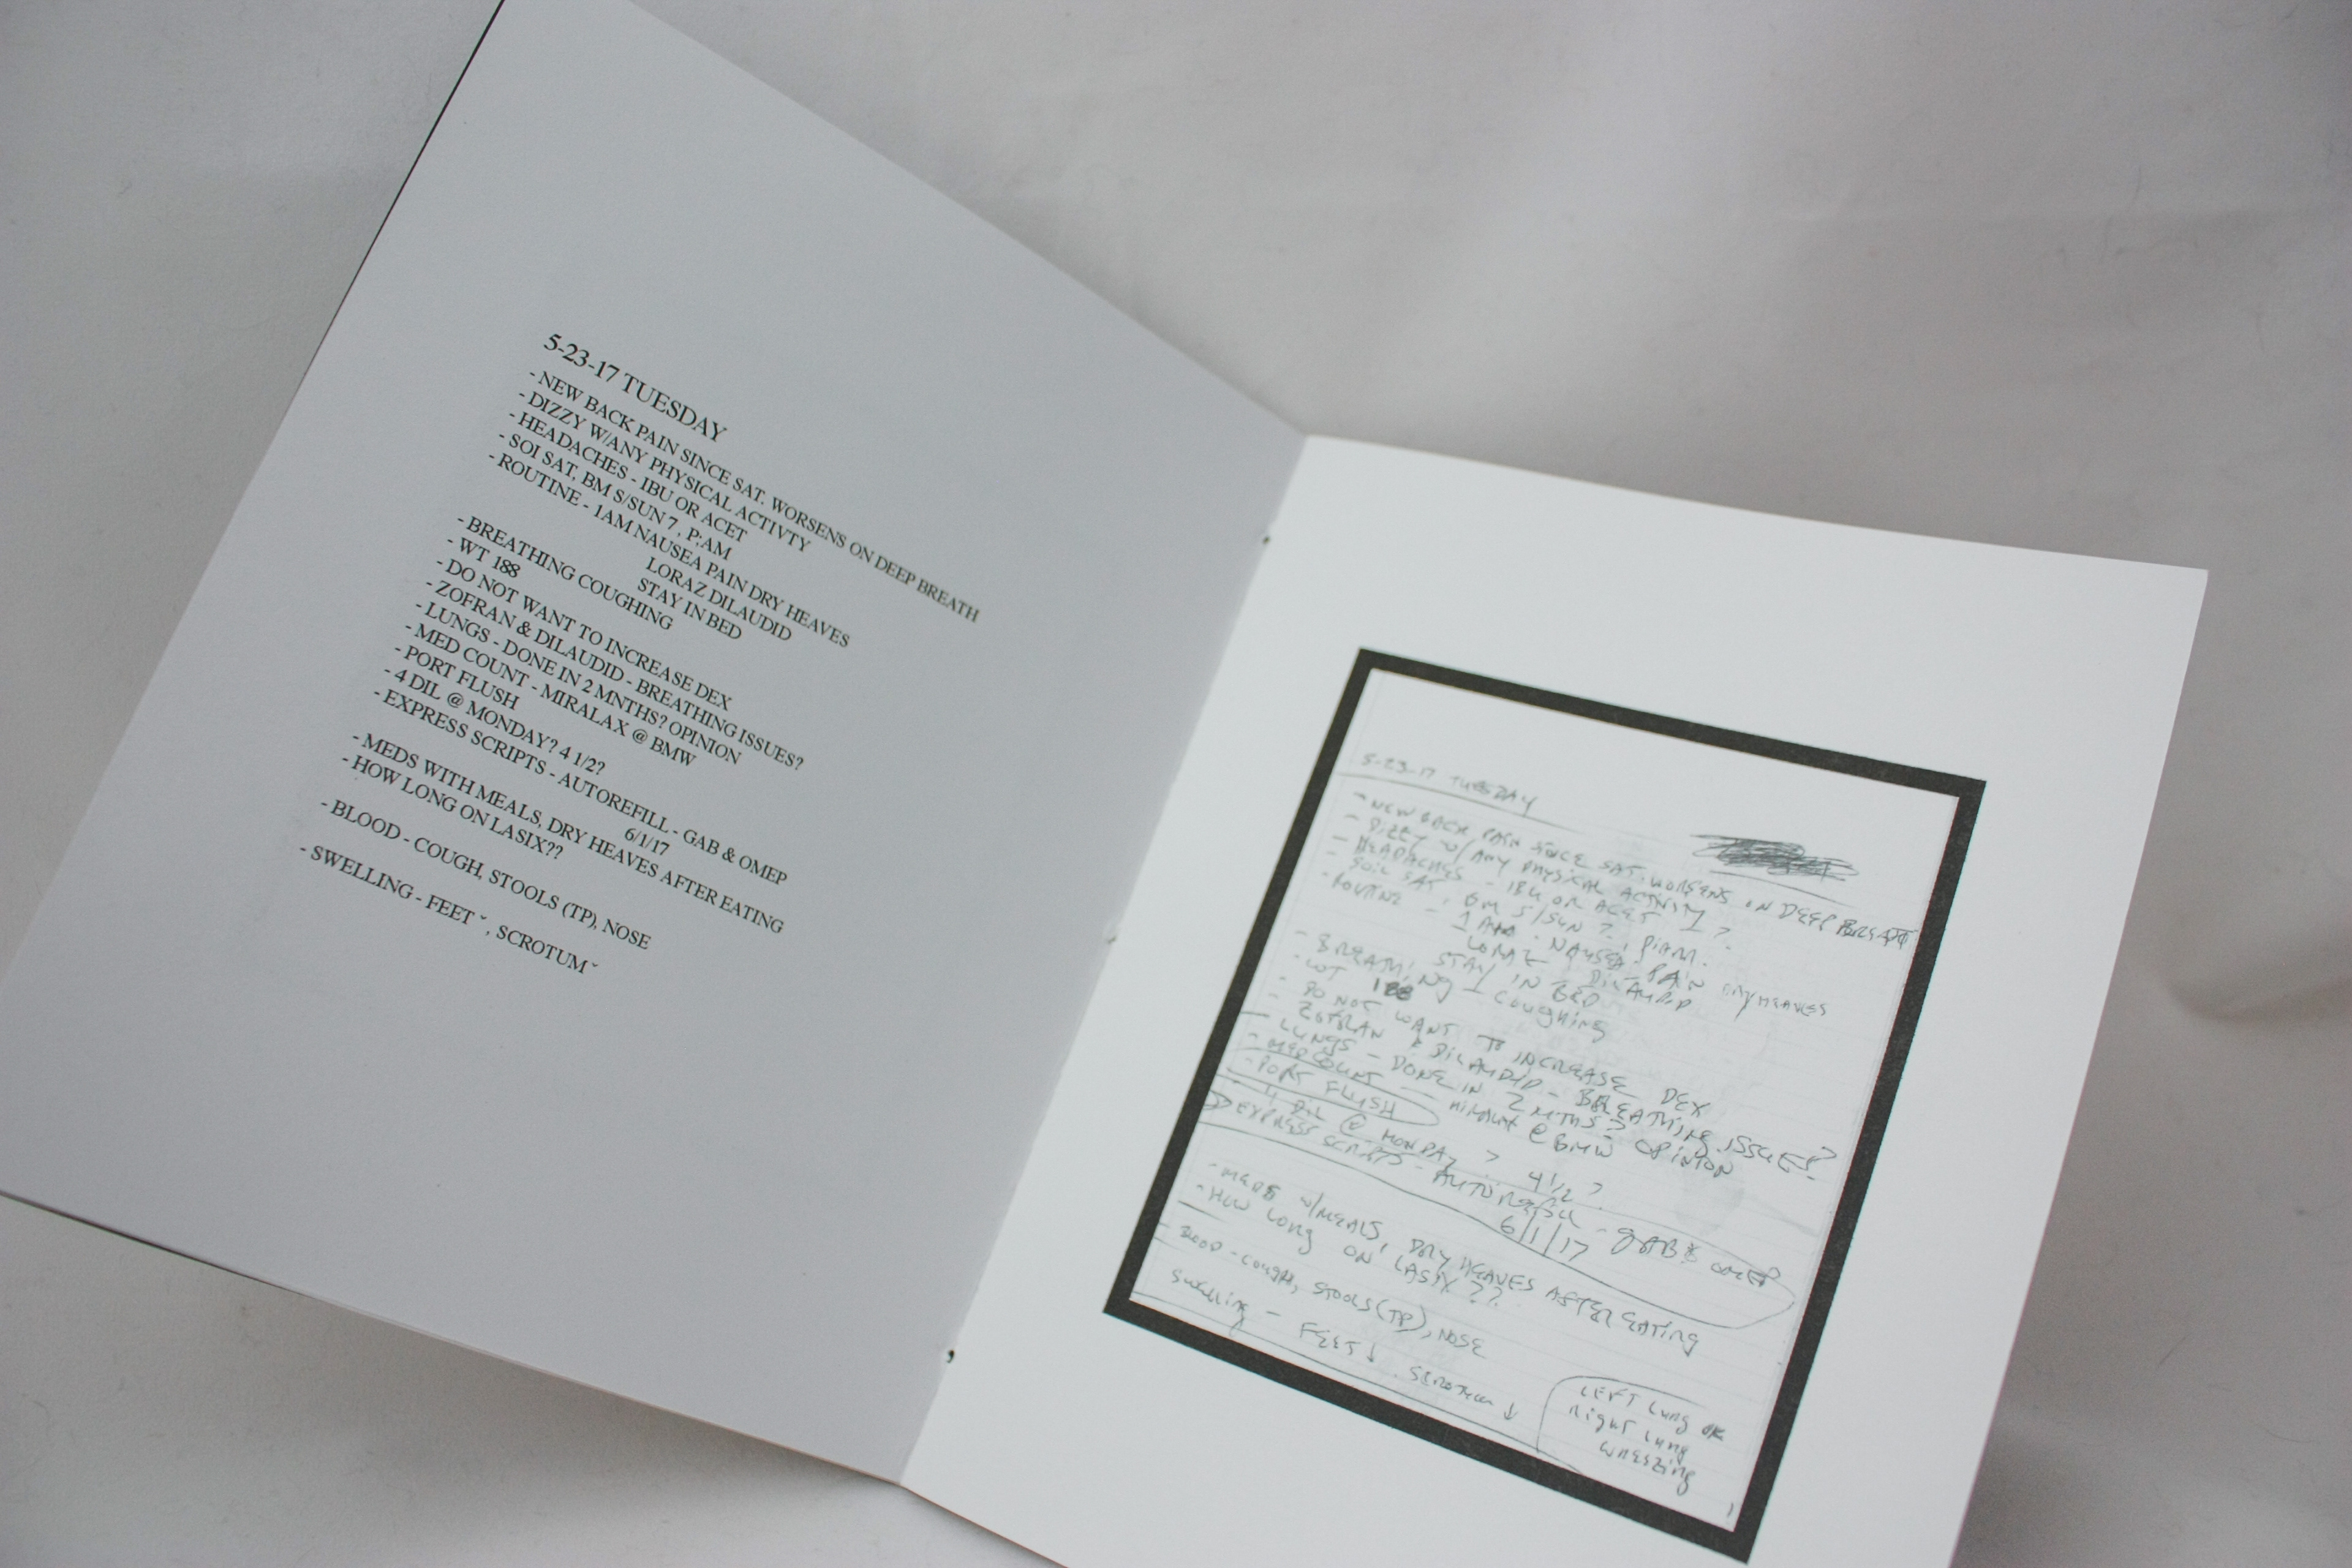 5-23-17 TUESDAY
- NEW BACK PAIN SINCE SAT. WORSENS ON DEEP BREATH
- DIZZY W/ANY PHYSICAL ACTIVTY
- HEADACHES - IBU OR ACET
- SOI SAT, BM S/SUN 7 , P;AM
- ROUTINE - 1AM NAUSEA PAIN DRY HEAVES
LORAZ DILAUDID
STAY IN BED
- BREATHING COUGHING
- WT 188
- DO NOT WANT TO INCREASE DEX
- ZOFRAN & DILAUDID - BREATHING ISSUES?
- LUNGS - DONE IN 2 MNTHS? OPINION
- MED COUNT - MIRALAX @ BMW
- PORT FLUSH
- 4 DIL @ MONDAY? 4 1/2?
- EXPRESS SCRIPTS - AUTOREFILL - GAB & OMEP
6/1/17
- MEDS WITH MEALS, DRY HEAVES AFTER EATING
- HOW LONG ON LASIX??
- BLOOD - COUGH, STOOLS (TP), NOSE
- SWELLING - FEET ˇ , SCROTUM ˇ
5-23-17 TUESDAY
- NEW BACK PAIN SINCE SAT. WORSENS ON DEEP BREATH
- DIZZY W/ ANY PHYSICAL ACTIVITY
- HEADACHES - IBU OR ACET ?
- SOIL SAT, BM S/SUN ?, P:AM.
- ROUTINE - 1 AM - NAUSEA PAIN DRY HEAVES
LORAZ DILAUDID
STAY IN BED
- BREATHING - COUGHING
- WT 188
- DO NOT WANT TO INCREASE DEX
- ZOFRAN & DILAUDID - BREATHING ISSUES?
- LUNGS - DONE IN 2 MTHS? OPINION
- MED COUNT - MIRALAX @ BMW
- PORT FLUSH
- 4 DIL @ MONDAY ? 4 1/2 ?
EXPRESS SCRIPTS - AUTOREFILL - GAB & OMEP
6/1/17
- MEDS W/MEALS, DRY HEAVES AFTER EATING
- HOW LONG ON LASIX ??
BLOOD - COUGH, STOOLS (TP), NOSE
SWELLING - FEET ↓ SCROTUM ↓
LEFT LUNG OK
RIGHT LUNG
WHEEZING